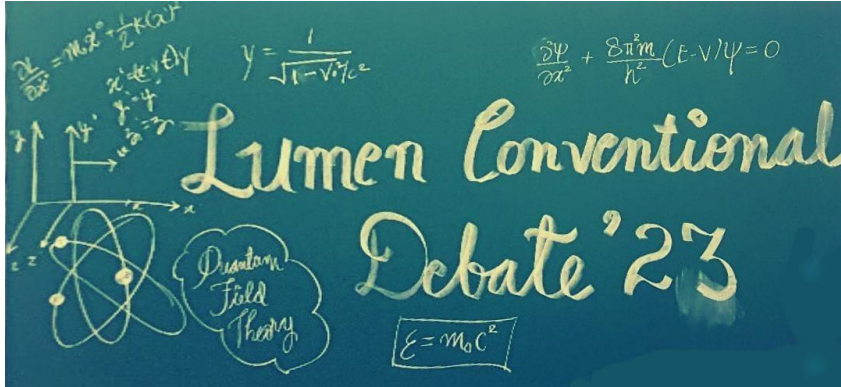 ∂L/∂ẋ = mẋ⁰ + ½K(x)²
x' = (x-vt)γ
y' = y
z' = z
y = 1/√(1-v²/c²)
∂Ψ/∂x² + 8π²m/h² (E-V)Ψ = 0
Lumen Conventional
Debate '23
Quantam
Field
Theory
ε = m₀c²